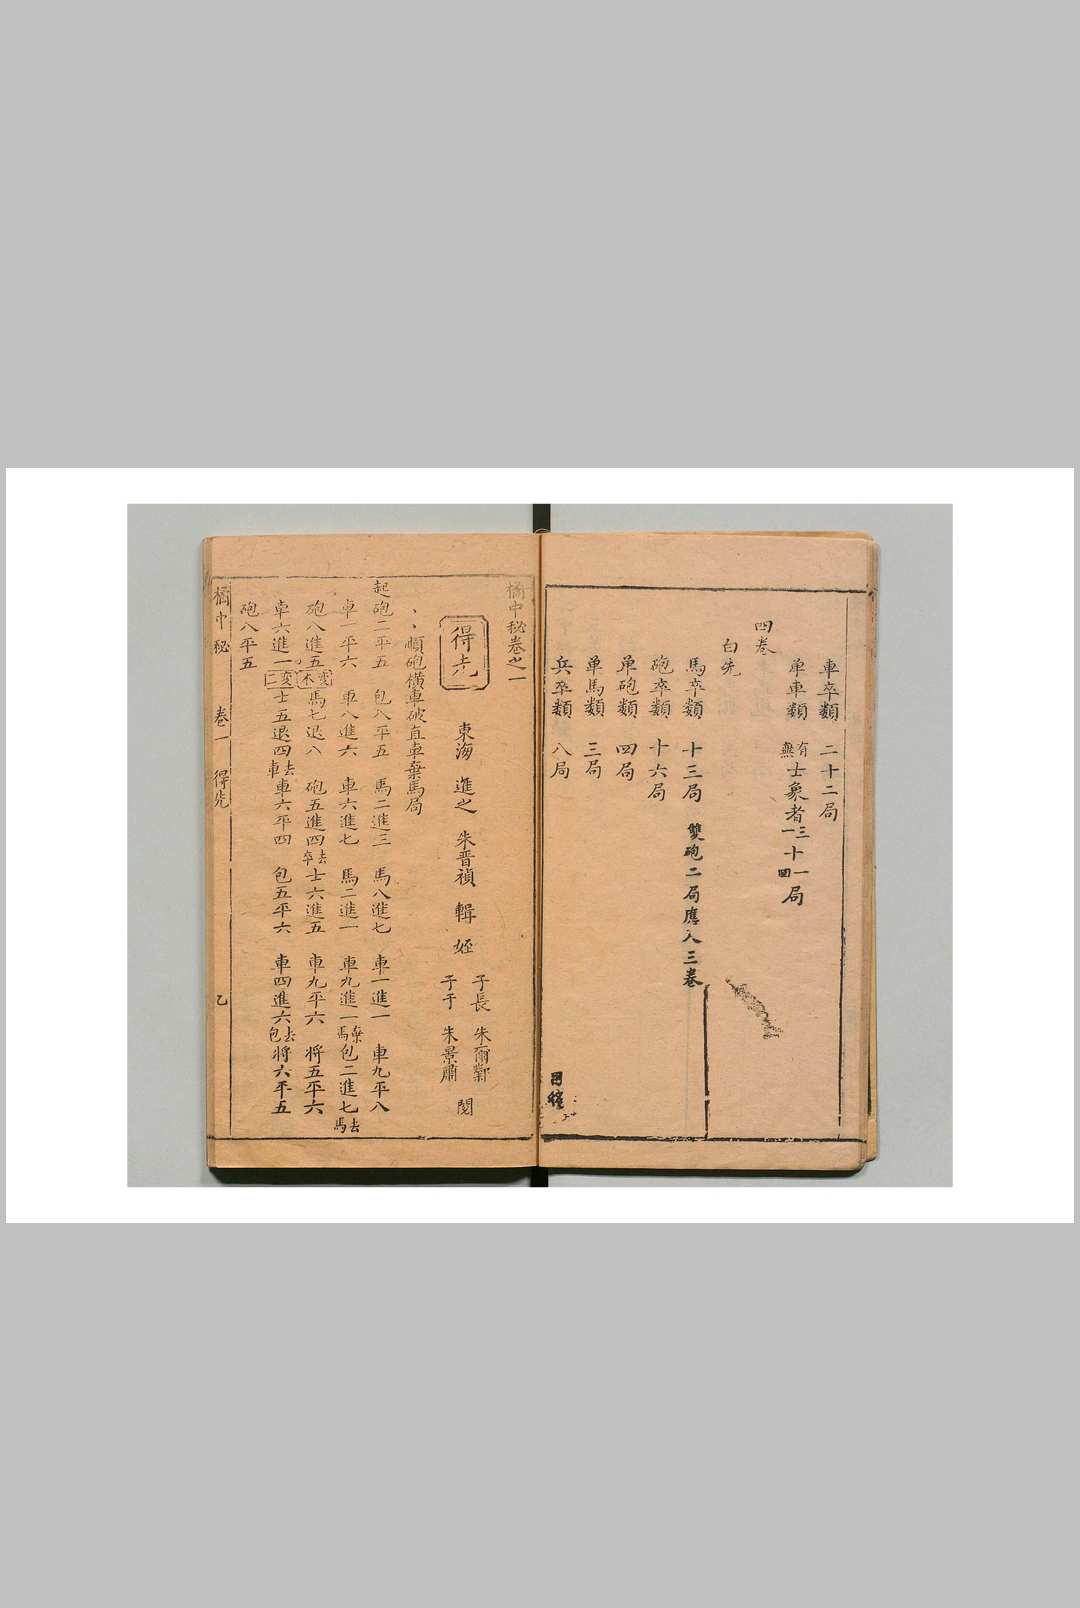 車卒類 二十二局
单車類 有無士象者三十一 一十四局
四卷
白先
馬卒類 十三局 雙砲二局應入三卷
砲卒類 十六局
单砲類 四局
单馬類 三局
兵卒類 八局
目 終
橘中秘卷之一
得先
東海 進之 朱晉禎 輯 姪 子長 朱爾鄴 子于 朱景肅 閱
順砲橫車破直車棄馬局
起砲二平五 包八平五 馬二進三 馬八進七 車一進一 車九平八
車一平六 車八進六 車六進七 馬二進一 車九進一棄馬 包二進七去馬
砲八進五変不 馬七退八 砲五進四去卒 士六進五 車九平六 将五平六
車六進一変二 士五退四去車 車六平四 包五平六 車四進六去包 将六平五
砲八平五
橘中秘 卷一 得先 乙